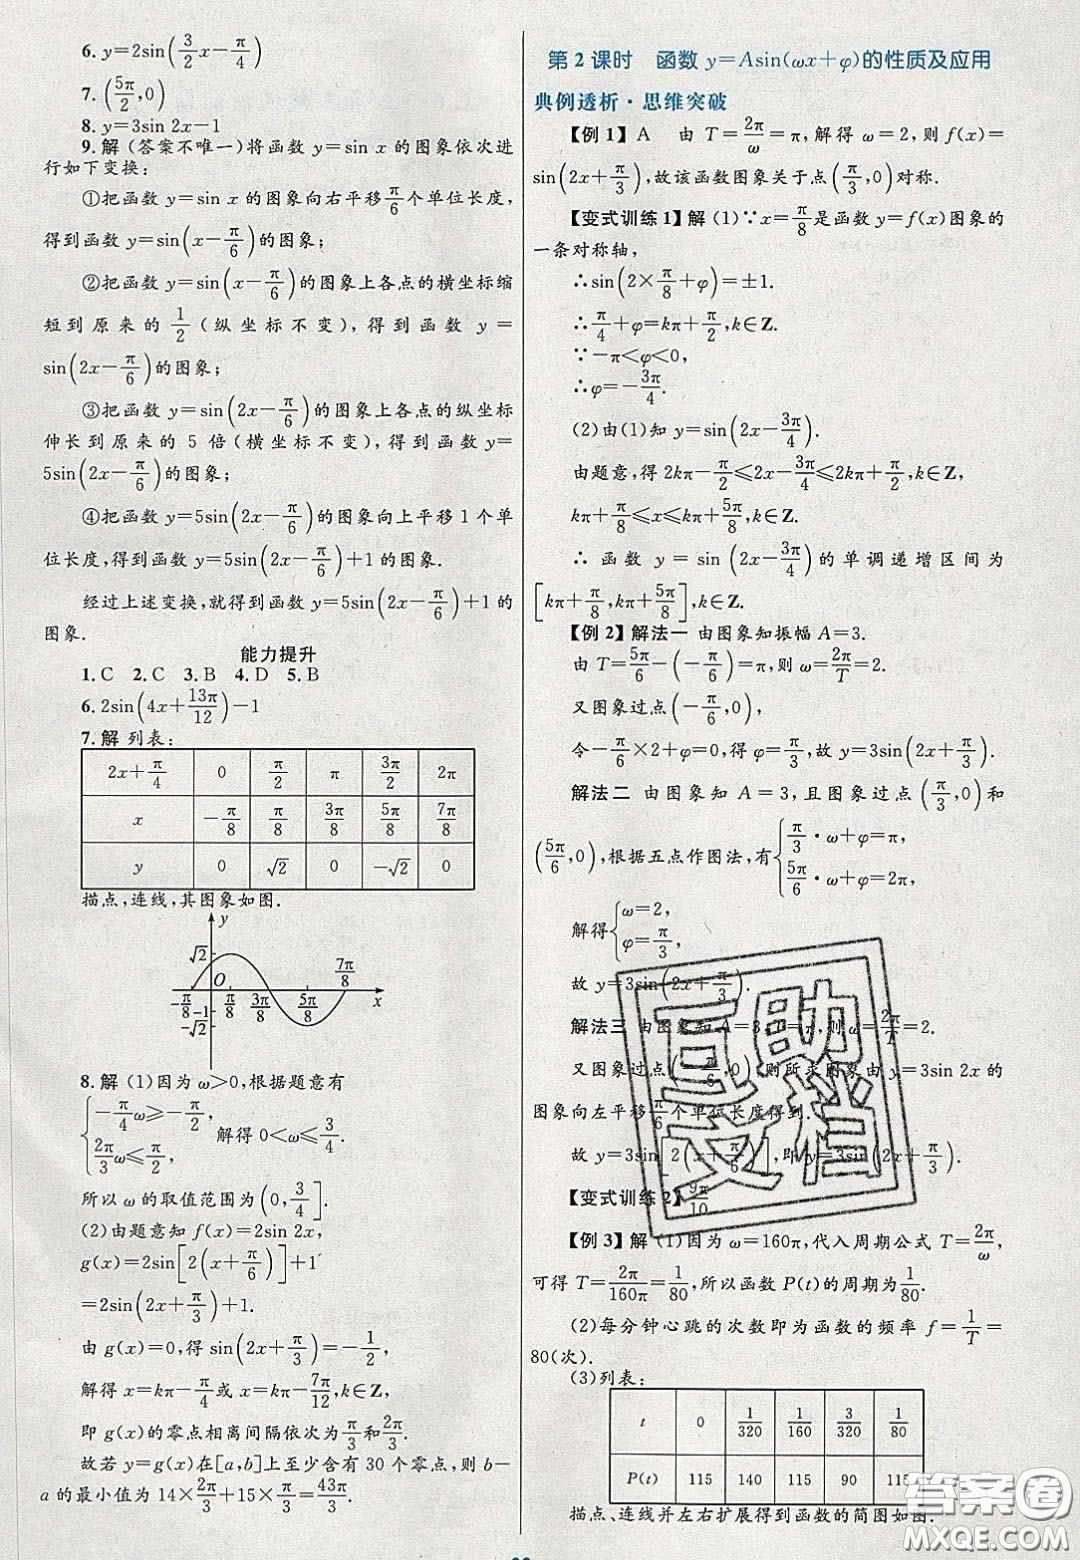 6. y=2sin(3/2x−π/4)
7. (5π/2,0)
8. y=3sin 2x−1
9. 解 (答案不唯一)将函数 y=sin x 的图象依次进
行如下变换:
①把函数 y=sin x 的图象向右平移π/6个单位长度,
得到函数 y=sin(x−π/6)的图象;
②把函数 y=sin(x−π/6)的图象上各点的横坐标缩
短到原来的 1/2 (纵坐标不变),得到函数 y=
sin(2x−π/6)的图象;
③把函数 y=sin(2x−π/6)的图象上各点的纵坐标
伸长到原来的 5 倍(横坐标不变),得到函数 y=
5sin(2x−π/6)的图象;
④把函数 y=5sin(2x−π/6)的图象向上平移 1 个单
位长度,得到函数 y=5sin(2x−π/6)+1 的图象.
经过上述变换,就得到函数 y=5sin(2x−π/6)+1 的
图象.
能力提升
1. C 2. C 3. B 4. D 5. B
6. 2sin(4x+13π/12)−1
7. 解 列表:
2x+π/4 0 π/2 π 3π/2 2π
x −π/8 π/8 3π/8 5π/8 7π/8
y 0 √2 0 −√2 0
描点,连线,其图象如图.
y
√2
O
7π/8
−π/8 −1 π/8 3π/8 5π/8 x
−√2
8. 解 (1)因为 ω>0,根据题意有
{−π/4ω≥−π/2, 2π/3ω≤π/2, 解得 0<ω≤3/4.
所以 ω 的取值范围为(0,3/4].
(2)由题意知 f(x)=2sin 2x,
g(x)=2sin[2(x+π/6)]+1
=2sin(2x+π/3)+1.
由 g(x)=0,得 sin(2x+π/3)=−1/2,
解得 x=kπ−π/4或 x=kπ−7π/12,k∈Z,
即 g(x)的零点相离间隔依次为π/3和2π/3.
故若 y=g(x)在[a,b]上至少含有 30 个零点,则 b−
a 的最小值为 14×2π/3+15×π/3=43π/3.
第 2 课时 函数 y=Asin(ωx+φ)的性质及应用
典例透析·思维突破
【例 1】 A 由 T=2π/ω=π,解得 ω=2,则 f(x)=
sin(2x+π/3),故该函数图象关于点(π/3,0)对称.
【变式训练 1】解 (1)∵x=π/8是函数 y=f(x)图象的
一条对称轴,
∴sin(2×π/8+φ)=±1.
∴π/4+φ=kπ+π/2,k∈Z.
∵−π<φ<0,
∴φ=−3π/4.
(2)由(1)知 y=sin(2x−3π/4).
由题意,得 2kπ−π/2≤2x−3π/4≤2kπ+π/2,k∈Z,
kπ+π/8≤x≤kπ+5π/8,k∈Z.
∴函数 y=sin(2x−3π/4)的单调递增区间为
[kπ+π/8,kπ+5π/8],k∈Z.
【例 2】解法一 由图象知振幅 A=3.
由 T=5π/6−(−π/6)=π,则 ω=2π/T=2.
又图象过点(−π/6,0),
令−π/6×2+φ=0,得 φ=π/3,故 y=3sin(2x+π/3).
解法二 由图象知 A=3,且图象过点(π/3,0)和
(5π/6,0),根据五点作图法,有{π/3·ω+φ=π, 5π/6·ω+φ=2π,
解得{ω=2, φ=π/3,
故 y=3sin(2x+π/3).
解法三 由图象知 A=3,T=π,则 ω=2π/T=2.
又图象过点(−π/6,0),则所求图象由 y=3sin 2x 的
图象向左平移π/6个单位长度得到.
故 y=3sin[2(x+π/6)],即 y=3sin(2x+π/3).
【变式训练 2】 9π/10
【例 3】解 (1)因为 ω=160π,代入周期公式 T=2π/ω,
可得 T=2π/160π=1/80,所以函数 P(t)的周期为1/80.
(2)每分钟心跳的次数即为函数的频率 f=1/T=
80(次).
(3)列表:
t 0 1/320 1/160 3/320 1/80
P(t) 115 140 115 90 115
描点、连线并左右扩展得到函数的简图如图.
互助文档
答案圈
MXQE.COM